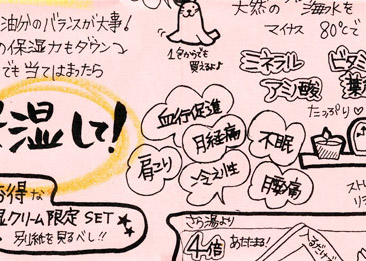 油分のバランスが大事!
の保湿力もダウン
でも当てはまったら
湿して!
お得な
クリーム限定SET
別紙を見るべし!!
1包からでも
買えるよ♪
天然の 海水を
マイナス 80℃で
ミネラル
アミノ酸
たっぷり♡
血行促進
月経痛
不眠
肩こり
冷え性
腰痛
さら湯より
4倍 あたたまる!